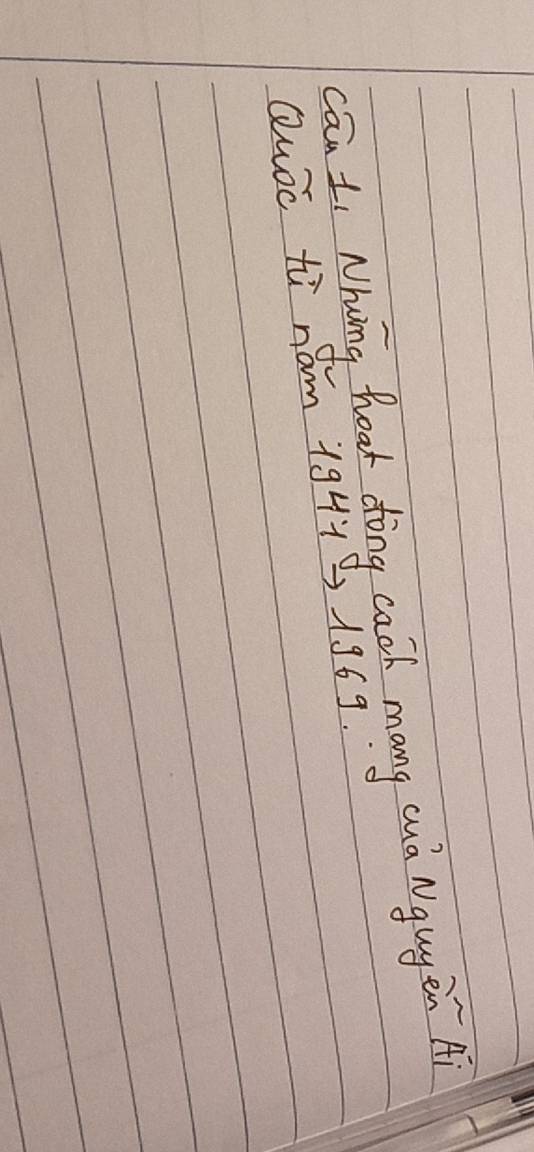 Câu 1. Những hoạt động cách mạng của Nguyễn Ái
Quốc từ năm 1941 → 1969.